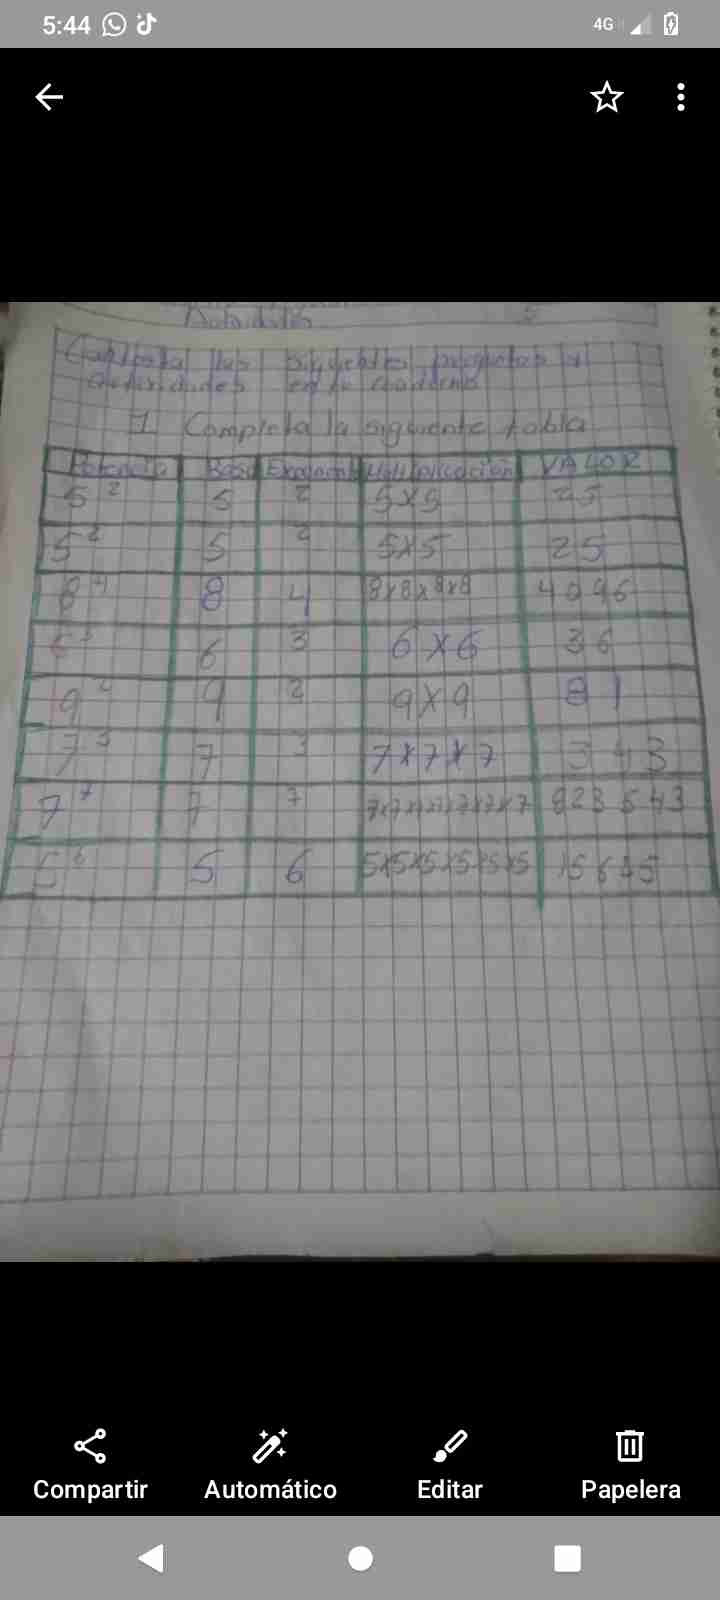 5:44
4G
Actividades
Contesta las siguientes preguntas y
actividades en tu cuaderno
1 Completa la siguiente tabla
Potencia Base Exponente Multiplicación VALOR
5² 5 2 5x5 25
5² 5 2 5x5 25
8⁴ 8 4 8x8x8x8 4096
6³ 6 3 6x6 36
9² 9 2 9x9 81
7³ 7 3 7x7x7 343
7⁷ 7 7 7x7x7x7x7x7x7 823543
5⁶ 5 6 5x5x5x5x5x5
Compartir Automático Editar Papelera